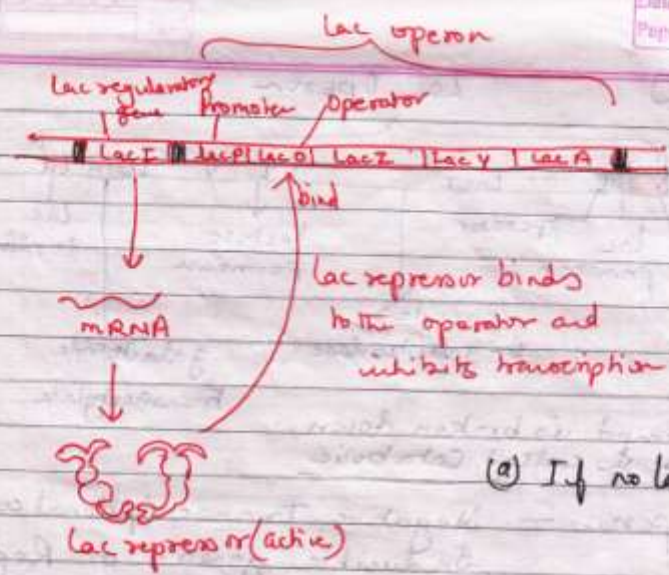 Lac operon
Lac regulatory
gene
Promoter
Operator
LacI
LacP
LacO
LacZ
Lac Y
Lac A
bind
Lac repressor binds
to the operator and
inhibits transcription
mRNA
(a) If no
Lac repressor (active)